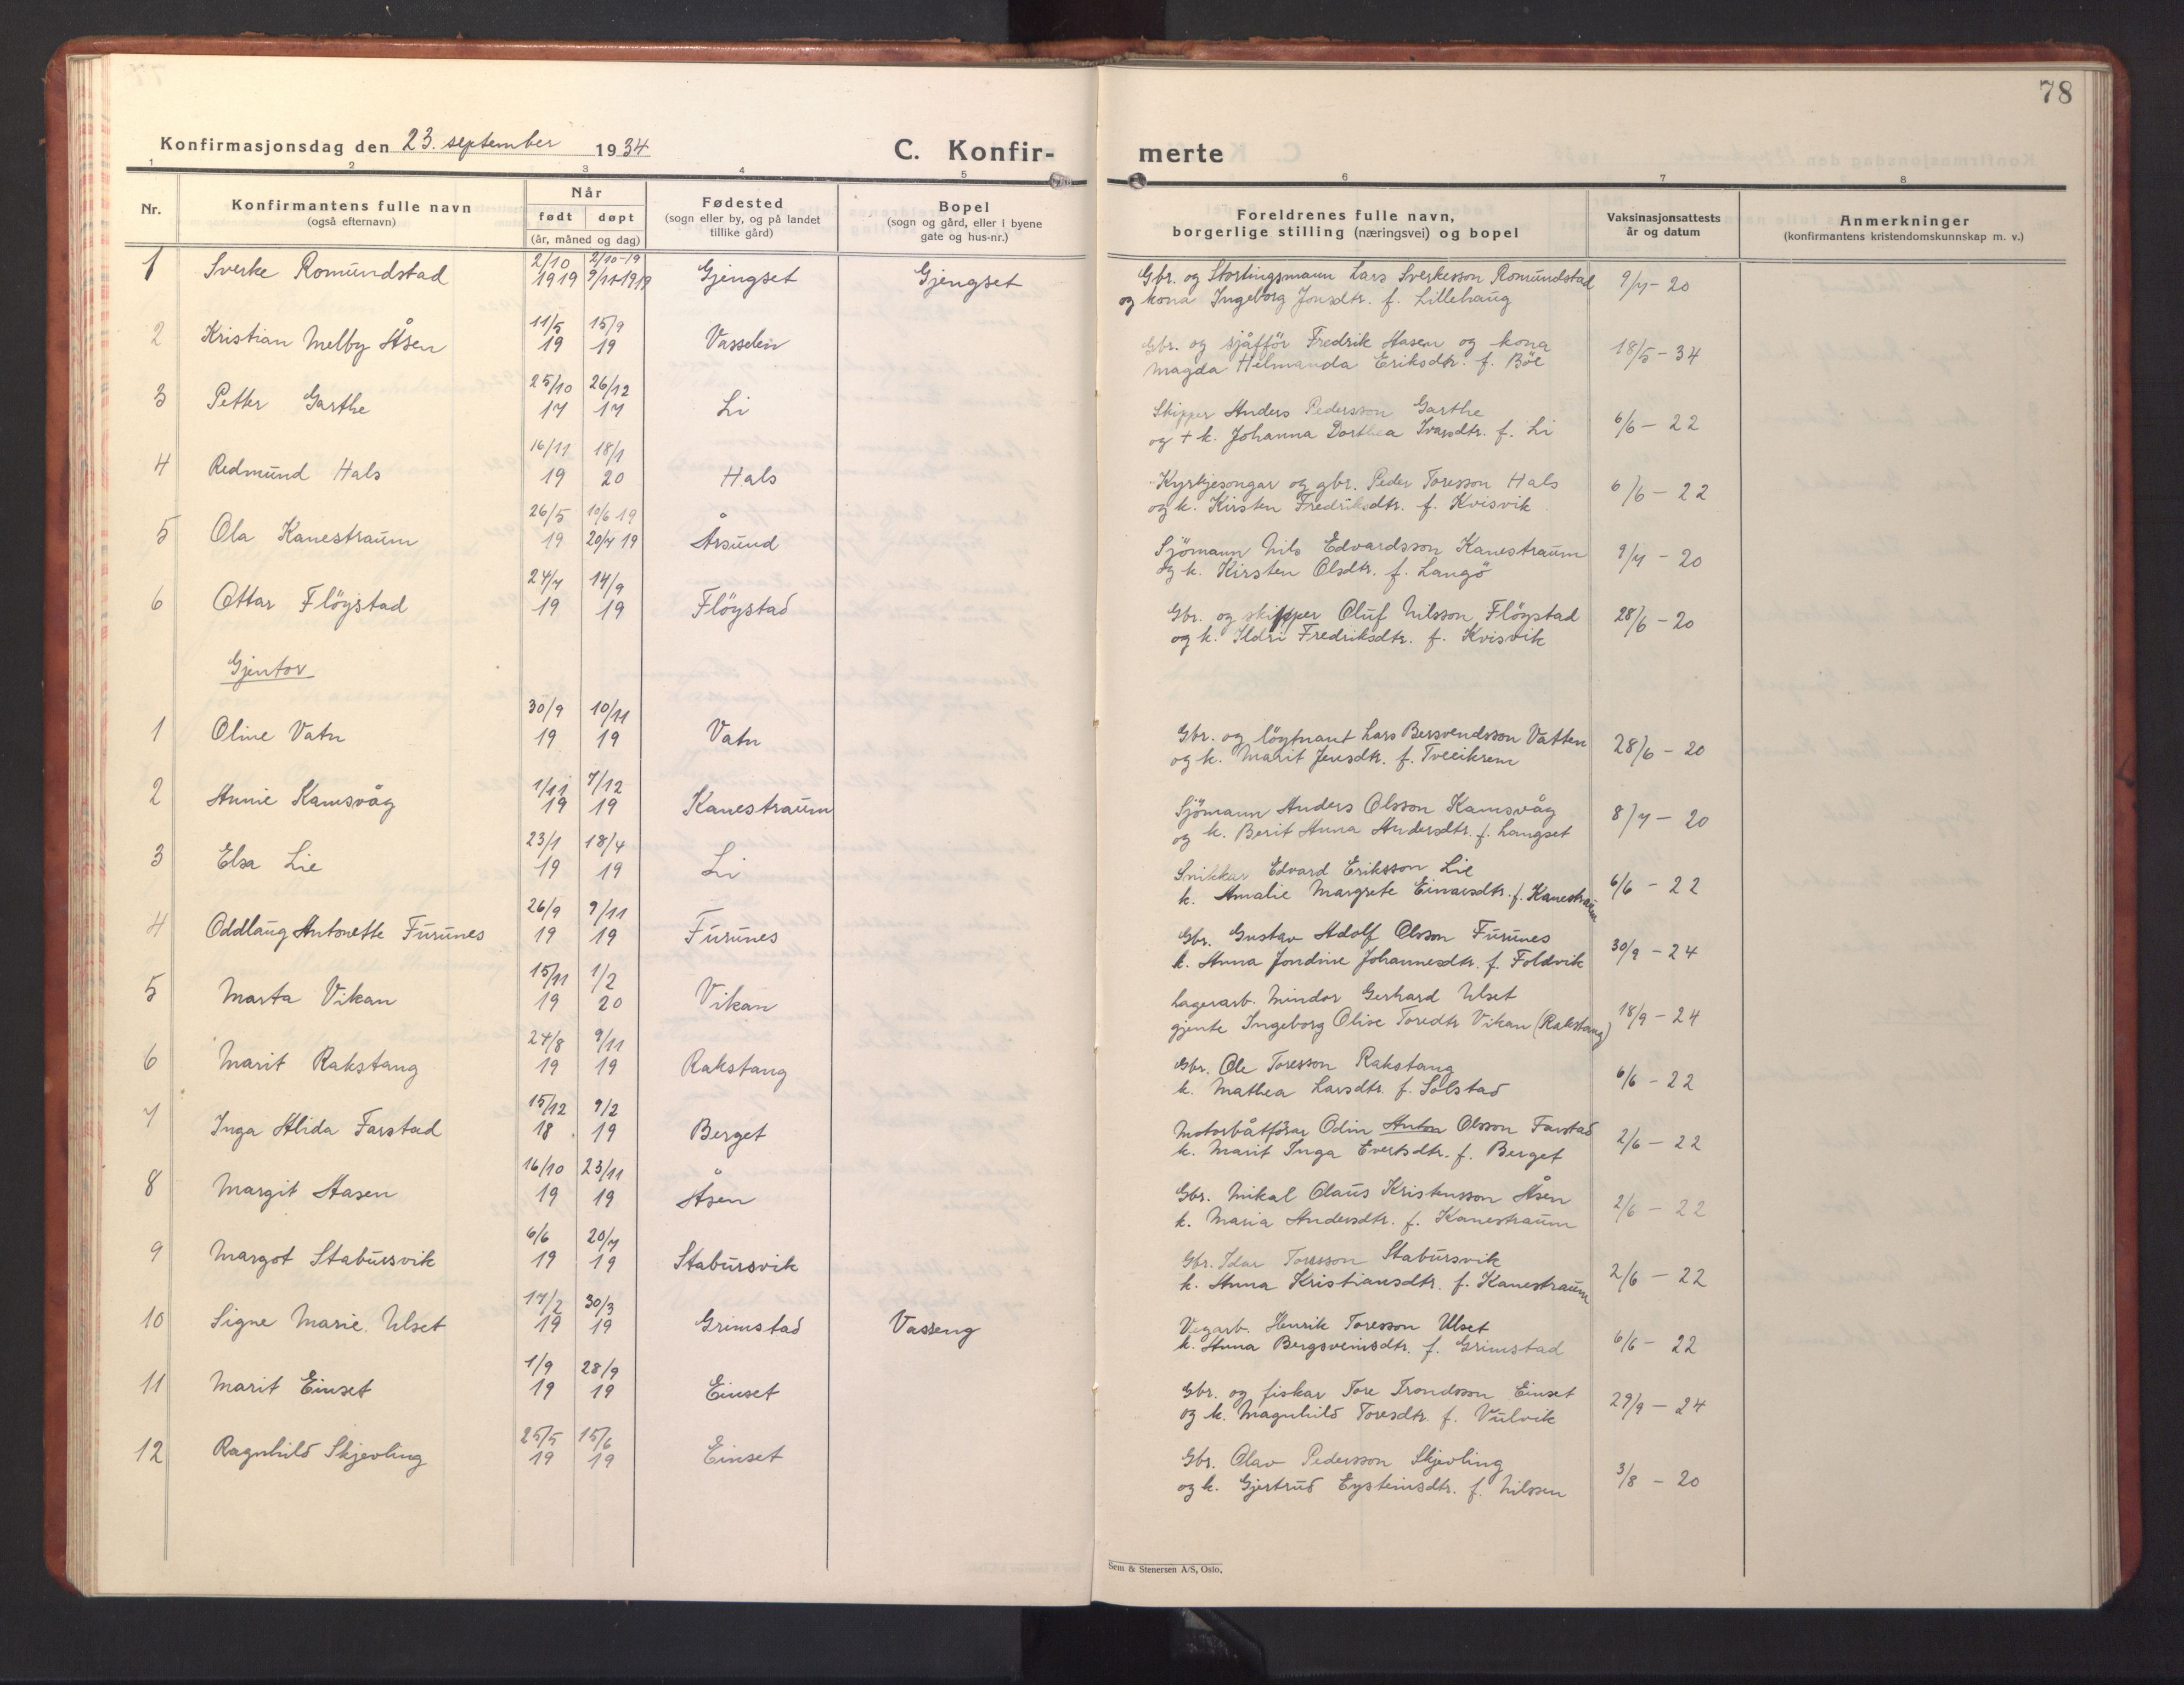 78
Konfirmasjonsdag den 23. september 1934
C. Konfir-
merte
1 2 3 4 5 6 7 8
Nr.
Konfirmantens fulle navn
(også efternavn)
Når
født døpt
(år, måned og dag)
Fødested
(sogn eller by, og på landet
tillike gård)
Bopel
(sogn og gård, eller i byene
gate og hus-nr.)
Foreldrenes fulle navn,
borgerlige stilling (næringsvei) og bopel
Vaksinasjonsattests
år og datum
Anmerkninger
(konfirmantens kristendomskunnskap m. v.)
1 Sverke Romundstad 2/10 1919 2/10-19 9/11-1919 Gjengset Gjengset Gbr. og Stortingsmann Lars Sverkesson Romundstad 9/7-20
og kona Ingeborg Jonsdtr. f. Lillehaug
2 Kristian Melby Åsen 11/5 19 15/9 19 Vasselen Gbr. og sjåfför Fredrik Aasen og kona 18/5-34
Magda Helmanda Eriksdtr. f. Böe
3 Petter Garthe 25/10 17 26/12 17 Li Skipper Anders Pedersson Garthe 6/6-22
og + k. Johanna Dorthea Ivarsdtr. f. Li
4 Redmund Hals 16/11 19 18/1 20 Hals Kyrkjesongar og gbr. Peder Toresson Hals 6/6-22
og k. Kirsten Fredriksdtr. f. Kvisvik
5 Ola Kanestraum 26/5 19 10/6 19 20/7 19 Årsund Sjömann Nils Edvardsson Kanestraum 9/7-20
og k. Kirsten Olsdtr. f. Langö
6 Ottar Flöystad 24/7 19 14/9 19 Flöystad Gbr. og skipper Oluf Nilsson Flöystad 28/6-20
og k. Ildri Fredriksdtr. f. Kvisvik
Gjentor
1 Oline Vatn 30/9 19 10/11 19 Vatn Gbr. og löytnant Lars Bersvendsson Vatten 28/6-20
og k. Marit Jensdtr. f. Tveeikrem
2 Annie Kamsvåg 1/11 19 7/12 19 Kanestraum Sjömann Anders Olsson Kamsvåg 8/7-20
og k. Berit Anna Andersdtr. f. Langset
3 Elsa Lie 23/1 19 18/4 19 Li Snikkar Edvard Eriksson Lie 6/6-22
k. Amalie Margrete Einarsdtr. f. Kanestraum
4 Oddlaug Antonette Furunes 26/9 19 9/11 19 Furunes Gbr. Gustav Adolf Olsson Furunes 30/9-24
k. Anna Jondine Johannesdtr. f. Foldvik
5 Marta Vikan 15/11 19 1/2 20 Vikan Lagerarb. Mindor Gerhard Ulset 18/9-24
gjente Ingeborg Olise Toredtr Vikan (Rakstang)
6 Marit Rakstang 24/8 19 9/11 19 Rakstang Gbr. Ole Toresson Rakstang 6/6-22
k. Mathea Larsdtr. f. Solstad
7 Inga Alida Farstad 15/12 18 9/2 19 Berget Motorbåtförar Odin Anton Olsson Farstad 2/6-22
k. Marit Inga Evertsdtr. f. Berget
8 Margit Aasen 16/10 19 23/11 19 Åsen Gbr. Mikal Olaus Kristensson Åsen 2/6-22
k. Maria Andersdtr. f. Kanestraum
9 Margot Stabursvik 6/6 19 20/7 19 Stabursvik Gbr. Idar Toresson Stabursvik 2/6-22
k. Anna Kristiansdtr. f. Kanestraum
10 Signe Marie Ulset 17/2 19 30/3 19 Grimstad Vasseng Vegarb. Henrik Toresson Ulset 6/6-22
k. Anna Bergsveinsdtr. f. Grimstad
11 Marit Einset 1/9 19 28/9 19 Einset Gbr. og fiskar Tore Trondsson Einset 29/9-24
og k. Magnhild Toresdtr. f. Vulvik
12 Ragnhild Skjevling 25/5 19 15/6 19 Einset Gbr. Olav Pedersson Skjevling 3/8-20
og k. Gjertrud Eysteinsdtr. f. Nilssen
Sem & Stenersen A/S, Oslo.